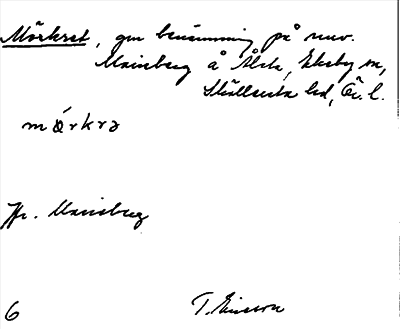 Mörkret, gm benämning på nuv.
Marieberg å Ålsta, Ekeby sn,
Skyllersta hd, Ör. l.
mörkrə
Jfr. Marieberg
6 T. Ericsson